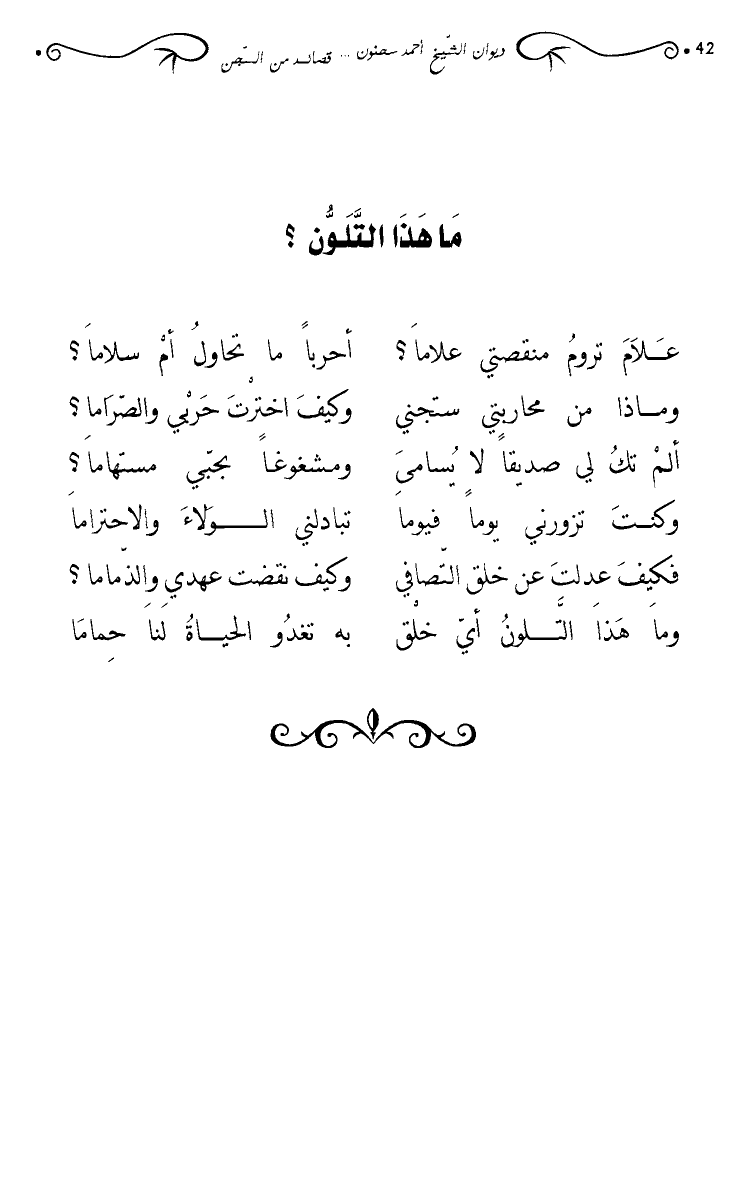 42 ديوان الشّيخ أحمد سحنون ... قصائد من السّجن
مَا هَذَا التَّلَوُّن ؟
عَـلاَمَ ترومُ منقصتي علامَا ؟ أحرباً ما تحاولُ أمْ سلامَا ؟
ومـاذا من محاربتي ستجني وكيفَ اخترْتَ حَرْبي والصّرَاما ؟
ألمْ تكُ لي صديقاً لا يُسامىَ ومشغوغـاً بحبّي مستهامَا ؟
وكنـتَ تزورني يوماً فيوماَ تبادلني الـــوَلاءَ والاحترامَا
فكيفَ عدلتَ عن خلق التّصافي وكيف نقضت عهدي والذّماما ؟
ومَا هَذَا التَّـــلونُ أيّ خلْق به تغدُو الحيـاةُ لنَا حِمامَا